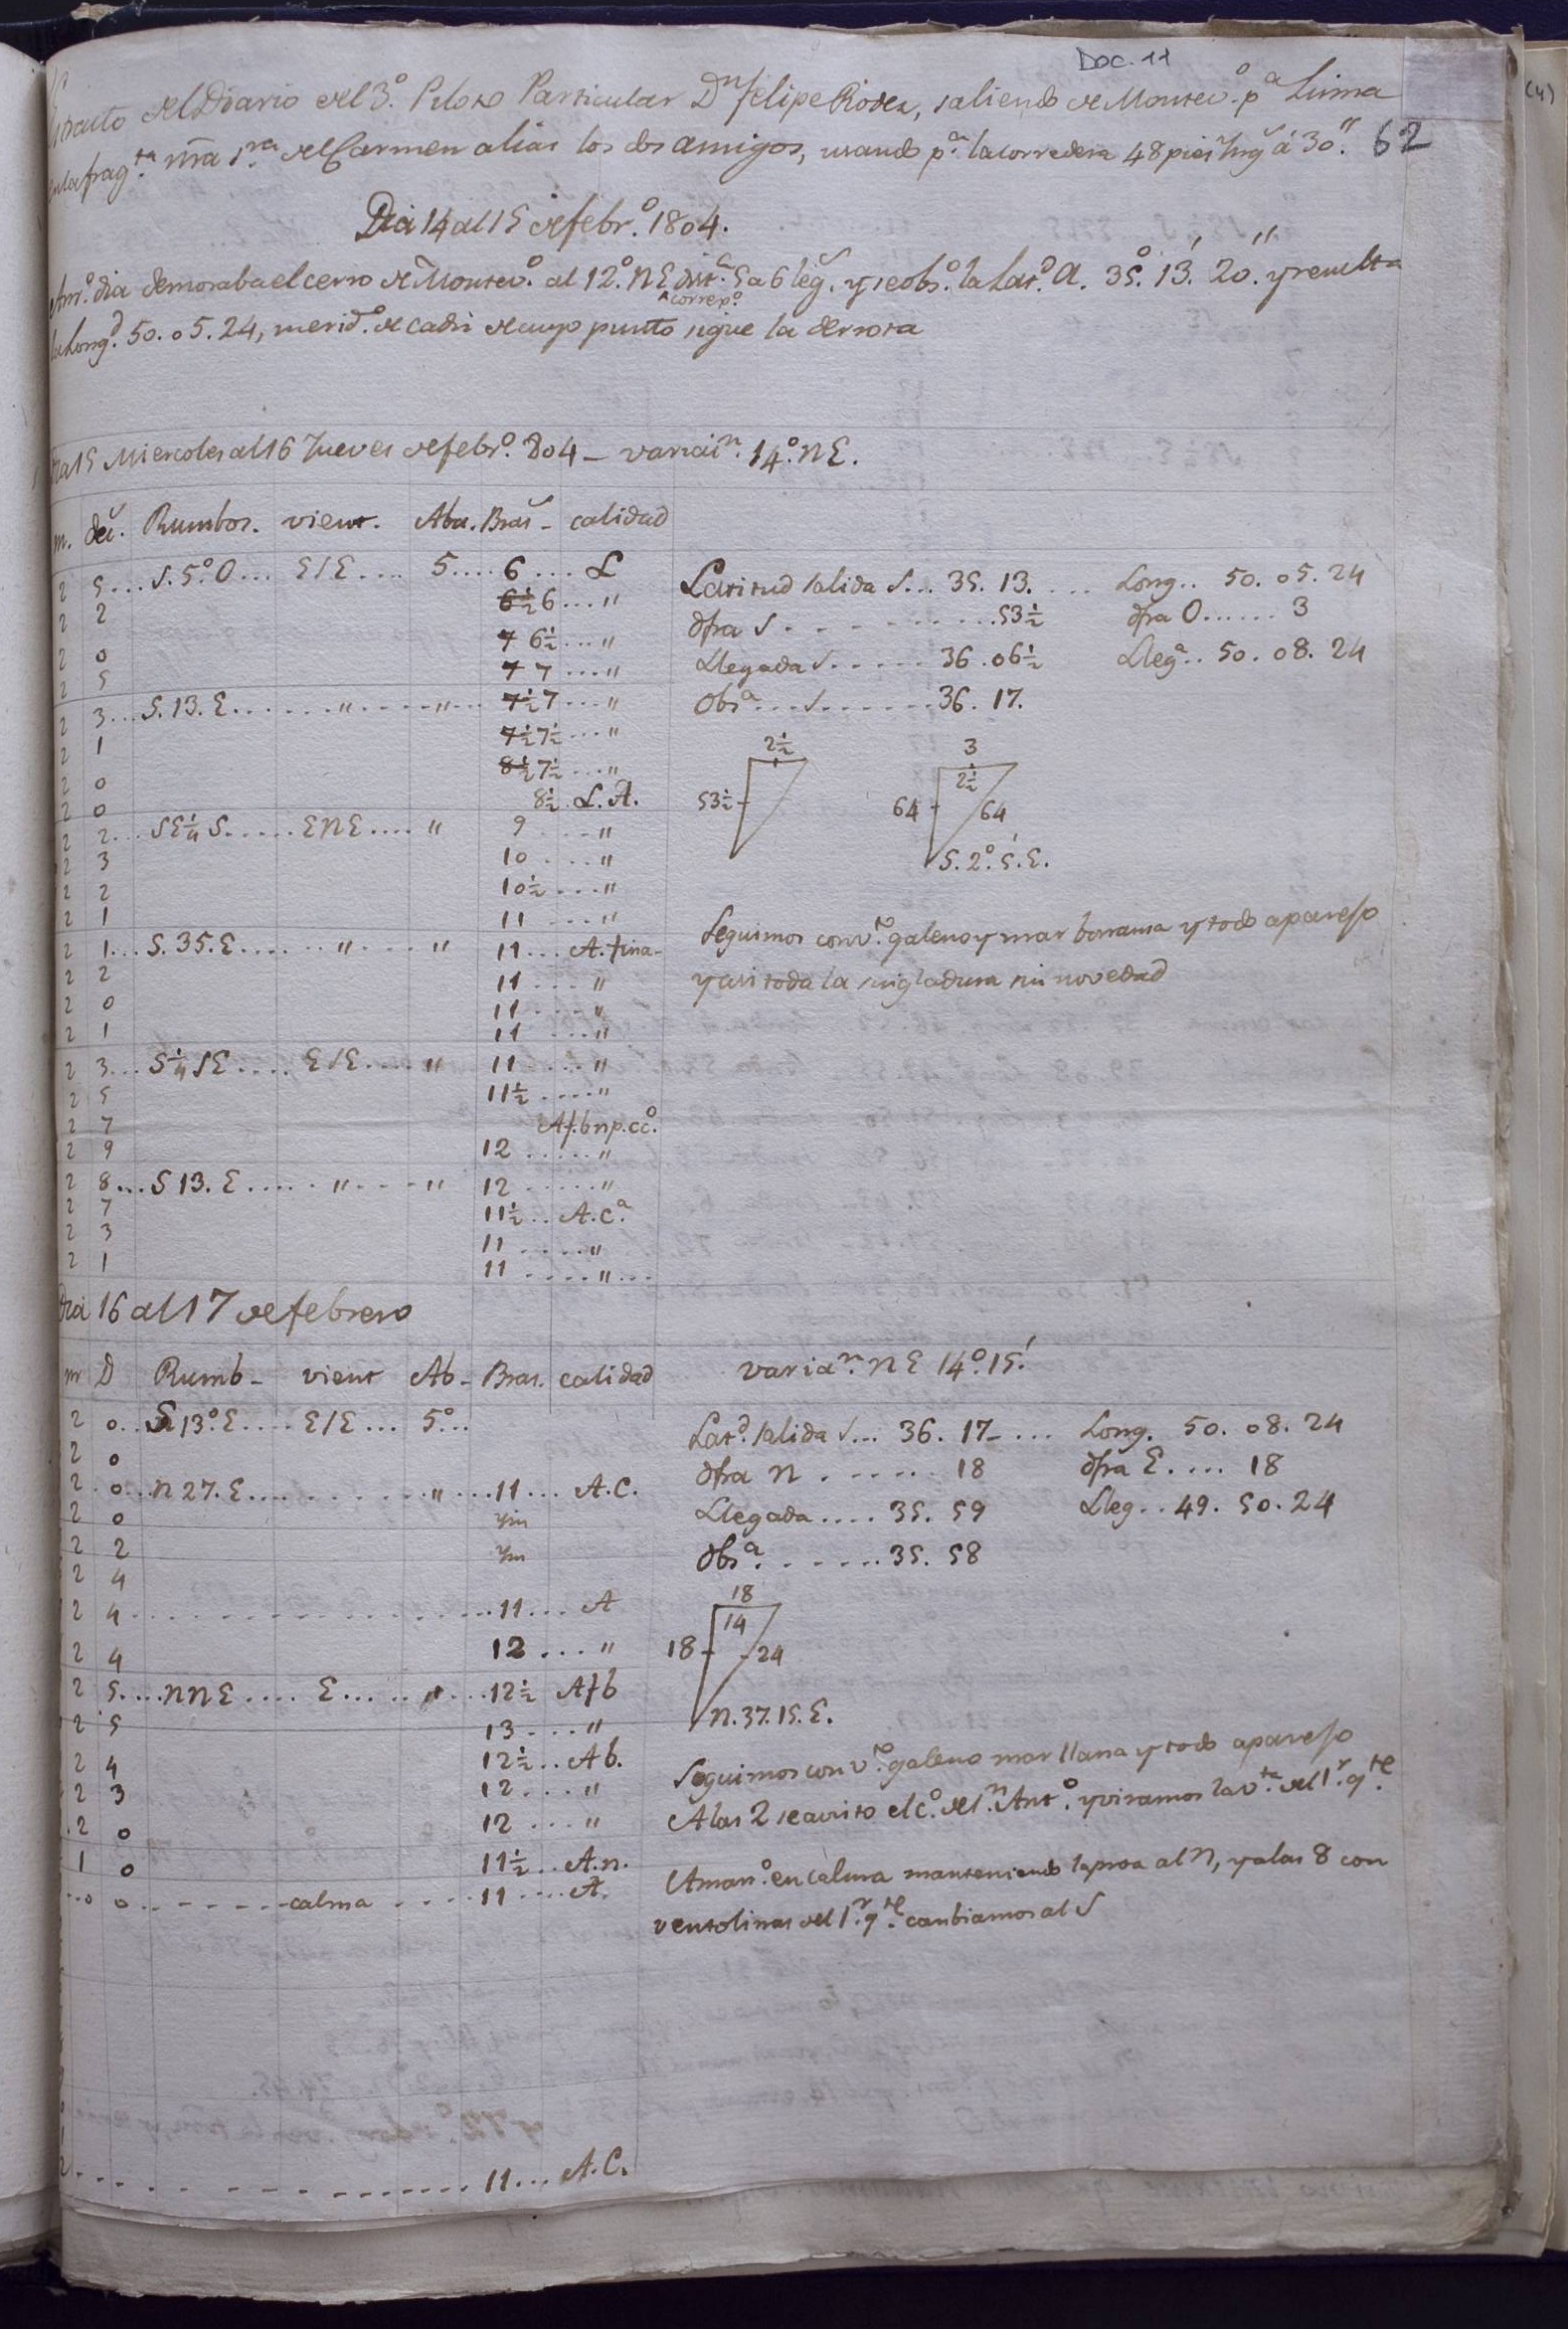 Doc. 11
62
Extracto del Diario del 3.º Piloto Particular Dn felipe Rodez, saliendo de Montevo. pa Lima
en la fragta. ñra Sra. del Carmen alias los dos amigos, usando pa. la corredera 48 pies Yng.s á 30''.
Dia 14 al 15 de febr.º 1804.
Antr.º dia demoraba el cerro de Montevº al 12.º NE dist.a 5 a 6 leg.s y se obs.º la Lat.d A. 35.º 13.' 20.'' y resulta
correxº.
la Long.d 50. 05. 24, merid.º de cadiz de cuyo punto sigue la derrota
Dia 15 Miercoles al 16 Jueves de febr.º 804 _ variai.n 14.º NE.
m. dec.s Rumbos. vient. Aba. Bras - calidad
2 5... S. 5.º O... ESE.... 5.... 6 ... L
2 2 6½ 6 ... "
2 0 7 6½ ... "
2 5 7 7 ... "
2 3... S. 13. E...... " .... " ... 7½ 7 ... "
2 1 7½ 7½ ... "
2 0 8½ 7½ ... "
2 0 8½ . L. A.
2 2... SE¼S..... ENE.... " 9 .... "
2 3 10 .... "
2 2 10½ .... "
2 1 11 .... "
2 1... S. 35. E.... " .... " 11... A. fina-
2 2 11 .... "
2 0 11 .... "
2 1 11 .... "
2 3... S¼SE.... ESE.... " 11 .... "
2 5 11½ .... "
2 7 Af. b n p. cc.º
2 9 12 ..... "
2 8... S 13. E..... " .... " 12 ..... "
2 7 11½ .. A. C.a
2 3 11 ..... "
2 1 11 .... " ...
Latitud salida S... 35. 13. ... Long.. 50. 05. 24
dfra S . . . . . . . 53½ dfra O...... 3
Llegada S...... 36. 06½ Lleg.a.. 50. 08. 24
Obs.a... S....... 36. 17.
2½ 3
2½
53½ 64 64
S. 2.º 5.' E.
Seguimos con v.to galeno y mar bonansa y todo aparejo
y asi toda la singladura sin novedad
Dia 16 al 17 de febrero
m D Rumb - vient Ab - Bras. calidad varia.n NE 14.º 15.'
2 0.. S 13.º E.... ESE... 5.º...
2 0
2 . 0... N 27. E........... " ... 11... A.C.
2 0 Ym
2 2 Ym
2 4
2 4................... 11... A
2 4 12 ... "
2 5.... NNE.... E..... " .... 12½ Afb
2 5 13 .... "
2 4 12½ .. Ab.
2 3 12 .... "
. 2 0 12 ... "
1 0 11½ .. A. n.
... 0 0........ calma .... 11.... A.
Lat.d salida S... 36. 17_ ... Long. 50. 08. 24
dfra N . ...... 18 dfra E.... 18
Llegada .... 35. 59 Lleg.. 49. 50. 24
Obs.a. ...... 35. 58
18
14
18 24
N. 37. 15. E.
Seguimos con v.to galeno mar llana y todo aparejo
A las 2 se avisto el c.º de S.n Ant.º y viramos la v.ta del 1.r q.te
Aman.º en calma manteniendo la proa al N, y a las 8 con
ventolinas del 1.r q.te cambiamos al S
2. - - . - - - - ....... 11... A. C.